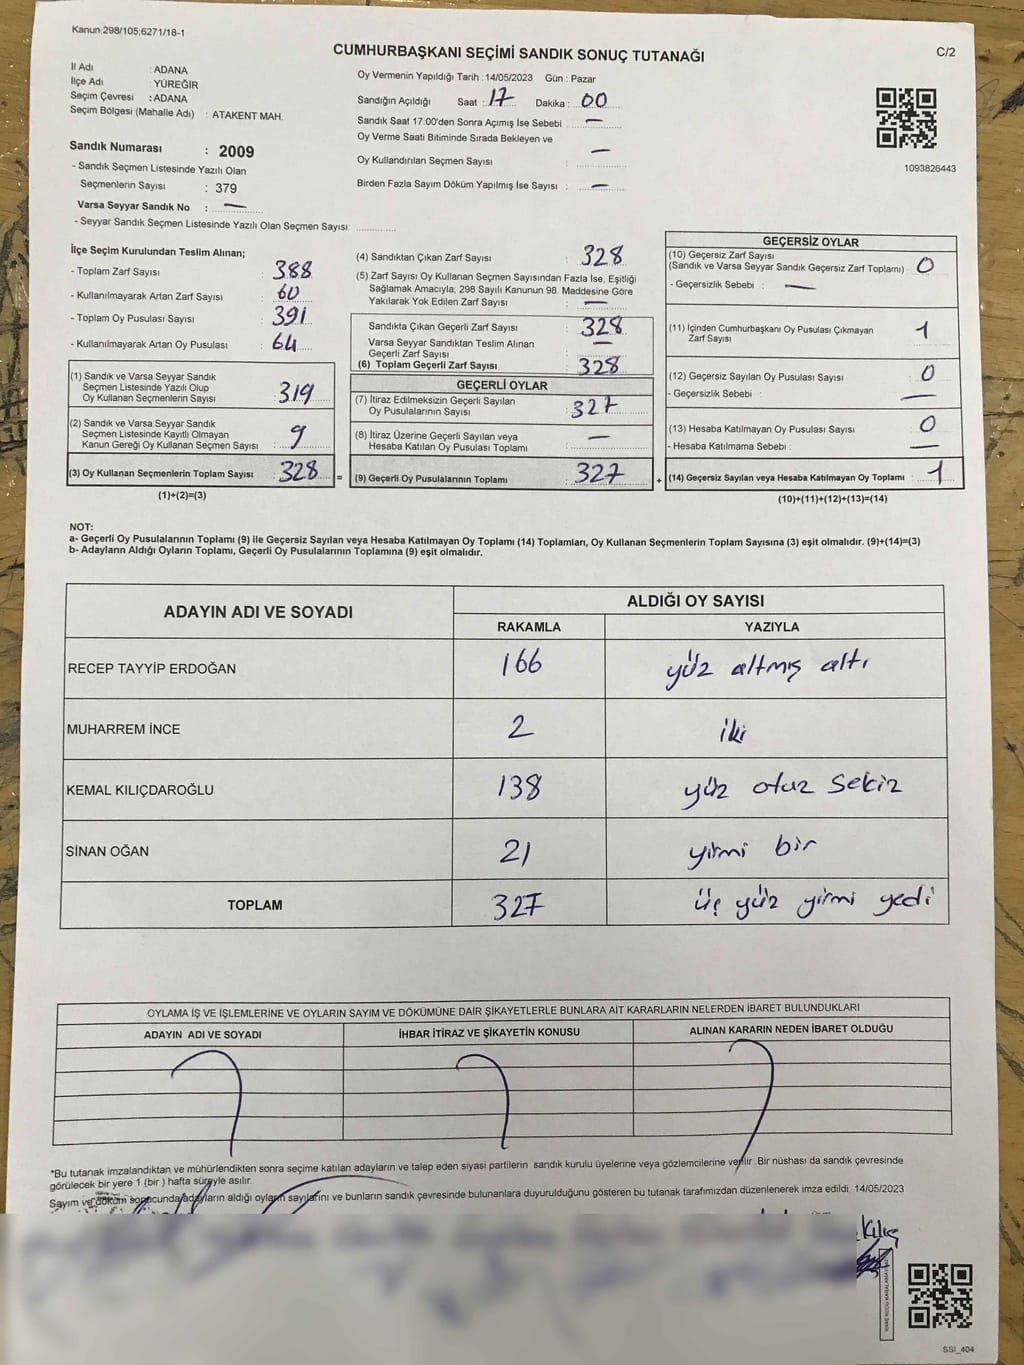 Kanun;298/105;6271/18-1
CUMHURBAŞKANI SEÇİMİ SANDIK SONUÇ TUTANAĞI
C/2
İl Adı : ADANA
İlçe Adı : YÜREĞİR
Seçim Çevresi : ADANA
Seçim Bölgesi (Mahalle Adı) : ATAKENT MAH.
Sandık Numarası : 2009
- Sandık Seçmen Listesinde Yazılı Olan
Seçmenlerin Sayısı : 379
Varsa Seyyar Sandık No : —
- Seyyar Sandık Seçmen Listesinde Yazılı Olan Seçmen Sayısı:
Oy Vermenin Yapıldığı Tarih :14/05/2023 Gün : Pazar
Sandığın Açıldığı Saat : 17 Dakika : 00
Sandık Saat 17:00'den Sonra Açımış İse Sebebi : —
Oy Verme Saati Bitiminde Sırada Bekleyen ve
Oy Kullandırılan Seçmen Sayısı : —
Birden Fazla Sayım Döküm Yapılmış İse Sayısı : —
1093826443
İlçe Seçim Kurulundan Teslim Alınan;
- Toplam Zarf Sayısı : 388
- Kullanılmayarak Artan Zarf Sayısı : 60
- Toplam Oy Pusulası Sayısı : 391
- Kullanılmayarak Artan Oy Pusulası : 64
(1) Sandık ve Varsa Seyyar Sandık
Seçmen Listesinde Yazılı Olup
Oy Kullanan Seçmenlerin Sayısı : 319
(2) Sandık ve Varsa Seyyar Sandık
Seçmen Listesinde Kayıtlı Olmayan
Kanun Gereği Oy Kullanan Seçmen Sayısı : 9
(3) Oy Kullanan Seçmenlerin Toplam Sayısı : 328
(1)+(2)=(3)
=
(4) Sandıktan Çıkan Zarf Sayısı : 328
(5) Zarf Sayısı Oy Kullanan Seçmen Sayısından Fazla İse, Eşitliği
Sağlamak Amacıyla; 298 Sayılı Kanunun 98. Maddesine Göre
Yakılarak Yok Edilen Zarf Sayısı : —
Sandıkta Çıkan Geçerli Zarf Sayısı : 328
Varsa Seyyar Sandıktan Teslim Alınan
Geçerli Zarf Sayısı : —
(6) Toplam Geçerli Zarf Sayısı : 328
GEÇERLİ OYLAR
(7) İtiraz Edilmeksizin Geçerli Sayılan
Oy Pusulalarının Sayısı : 327
(8) İtiraz Üzerine Geçerli Sayılan veya
Hesaba Katılan Oy Pusulası Toplamı : —
(9) Geçerli Oy Pusulalarının Toplamı : 327
+
GEÇERSİZ OYLAR
(10) Geçersiz Zarf Sayısı
(Sandık ve Varsa Seyyar Sandık Geçersiz Zarf Toplamı) : 0
- Geçersizlik Sebebi : —
(11) İçinden Cumhurbaşkanı Oy Pusulası Çıkmayan
Zarf Sayısı : 1
(12) Geçersiz Sayılan Oy Pusulası Sayısı : 0
- Geçersizlik Sebebi : —
(13) Hesaba Katılmayan Oy Pusulası Sayısı : 0
- Hesaba Katılmama Sebebi : —
(14) Geçersiz Sayılan veya Hesaba Katılmayan Oy Toplamı : 1
(10)+(11)+(12)+(13)=(14)
NOT:
a- Geçerli Oy Pusulalarının Toplamı (9) ile Geçersiz Sayılan veya Hesaba Katılmayan Oy Toplamı (14) Toplamları, Oy Kullanan Seçmenlerin Toplam Sayısına (3) eşit olmalıdır. (9)+(14)=(3)
b- Adayların Aldığı Oyların Toplamı, Geçerli Oy Pusulalarının Toplamına (9) eşit olmalıdır.
ADAYIN ADI VE SOYADI
ALDIĞI OY SAYISI
RAKAMLA YAZIYLA
RECEP TAYYİP ERDOĞAN 166 yüz altmış altı
MUHARREM İNCE 2 iki
KEMAL KILIÇDAROĞLU 138 yüz otuz sekiz
SİNAN OĞAN 21 yirmi bir
TOPLAM 327 üç yüz yirmi yedi
OYLAMA İŞ VE İŞLEMLERİNE VE OYLARIN SAYIM VE DÖKÜMÜNE DAİR ŞİKAYETLERLE BUNLARA AİT KARARLARIN NELERDEN İBARET BULUNDUKLARI
ADAYIN ADI VE SOYADI İHBAR İTİRAZ VE ŞİKAYETİN KONUSU ALINAN KARARIN NEDEN İBARET OLDUĞU
*Bu tutanak imzalandıktan ve mühürlendikten sonra seçime katılan adayların ve talep eden siyasi partilerin sandık kurulu üyelerine veya gözlemcilerine verilir. Bir nüshası da sandık çevresinde
görülecek bir yere 1 (bir) hafta süreyle asılır.
Sayım ve döküm sonucunda adayların aldığı oyların sayılarını ve bunların sandık çevresinde bulunanlara duyurulduğunu gösteren bu tutanak tarafımızdan düzenlenerek imza edildi. 14/05/2023
Kılıç
SSİ_404